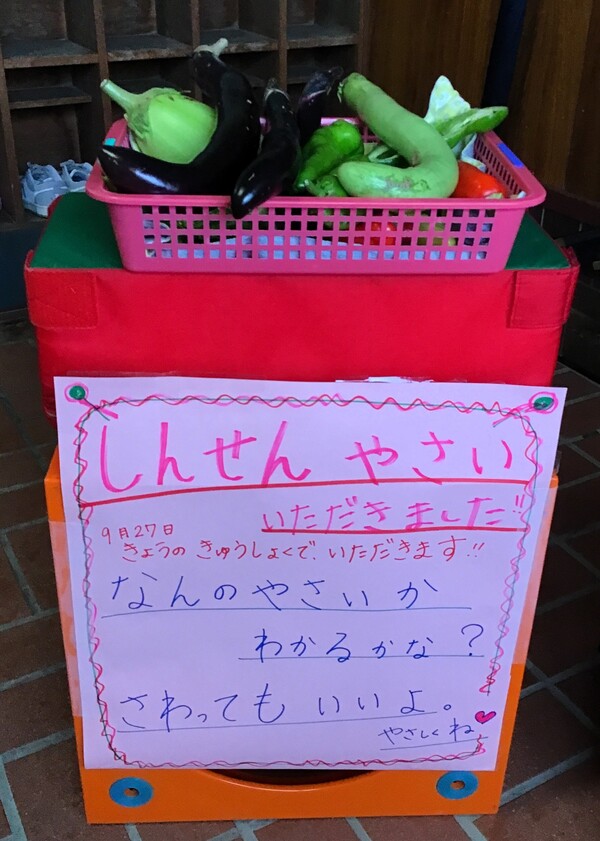 しんせん やさい
いただきました!!
9月27日
きょうの きゅうしょくで、いただきます!!
なんのやさいか
わかるかな?
さわっても いいよ。
やさしくね